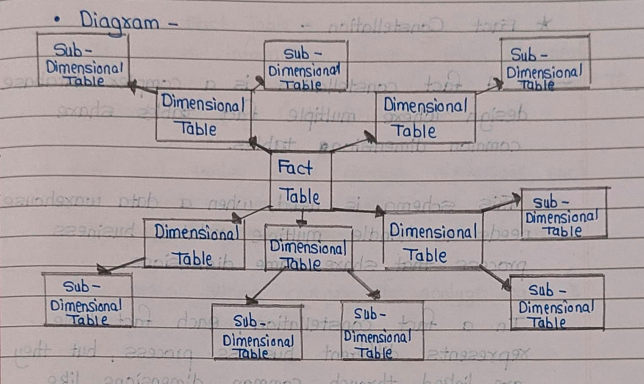 • Diagram -
Sub -
Dimensional
Table
Sub -
Dimensional
Table
Sub -
Dimensional
Table
Dimensional
Table
Dimensional
Table
Fact
Table
Dimensional
Table
Dimensional
Table
Dimensional
Table
Sub -
Dimensional
Table
Sub -
Dimensional
Table
Sub -
Dimensional
Table
Sub -
Dimensional
Table
Sub -
Dimensional
Table